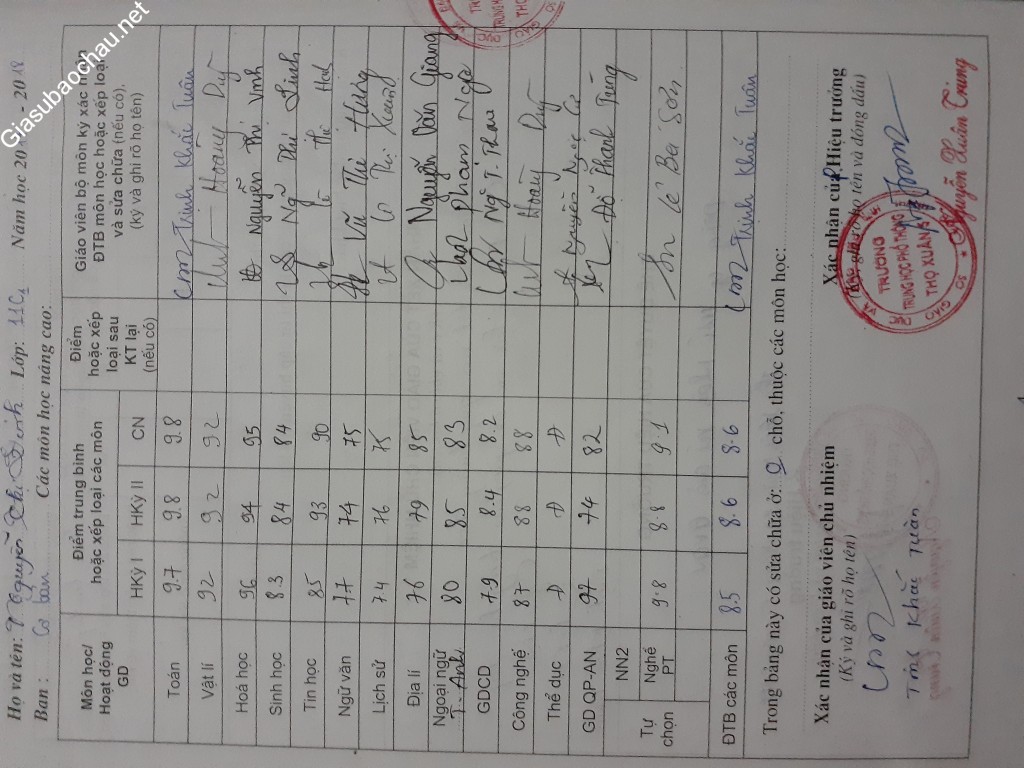 Giasubaochau.net
Họ và tên: Nguyễn Lớp: 11C1 Năm học 20 - 2018
Ban: Cơ bản Các môn học nâng cao:
Môn học/ Hoạt động GD
Điểm trung bình hoặc xếp loại các môn
HKỳ I HKỳ II CN
Điểm hoặc xếp loại sau KT lại (nếu có)
Giáo viên bộ môn ký xác nhận ĐTB môn học hoặc xếp loại và sửa chữa (nếu có), (Ký và ghi rõ họ tên)
Toán 9.7 9.8 9.8 Trịnh Khắc Tuân
Vật lí 92 92 92 Hoàng Duỹ
Hoá học 96 94 95 Nguyễn Thị Vinh
Sinh học 8.3 84 84 Ngỹ Thị Linh
Tin học 85 93 90 Lê Thị Hoa
Ngữ văn 7.7 74 75 Vũ Thị Hưng
Lịch sử 7.4 76 75 Lê Thị Xuang
Địa lí 76 79 85 Nguyễn Văn Giang
Ngoại ngữ T. Anh 80 85 83 Phạm Nga
GDCD 79 8.4 8.2 Ngỹ T. Thau
Công nghệ 87 88 88 Hoàng Duỹ
Thể dục Đ Đ Đ Nguyễn Ngọc
GD QP-AN 97 74 82 Đỗ Thanh Tùng
Tự chọn
NN2
Nghề PT 9.8 8.8 9.1 Lê Bá Sơn
ĐTB các môn 8.5 8.6 8.6 Trịnh Khắc Tuân
Trong bảng này có sửa chữa ở: 0 chỗ, thuộc các môn học:
Xác nhận của giáo viên chủ nhiệm
(Ký và ghi rõ họ tên)
Trịnh Khắc Tuân
Xác nhận của Hiệu trưởng
(Ký, ghi rõ họ tên và đóng dấu)
TRƯỜNG
TRUNG HỌC PHỔ THÔNG
THỌ XUÂN
Nguyễn Xuân Trung